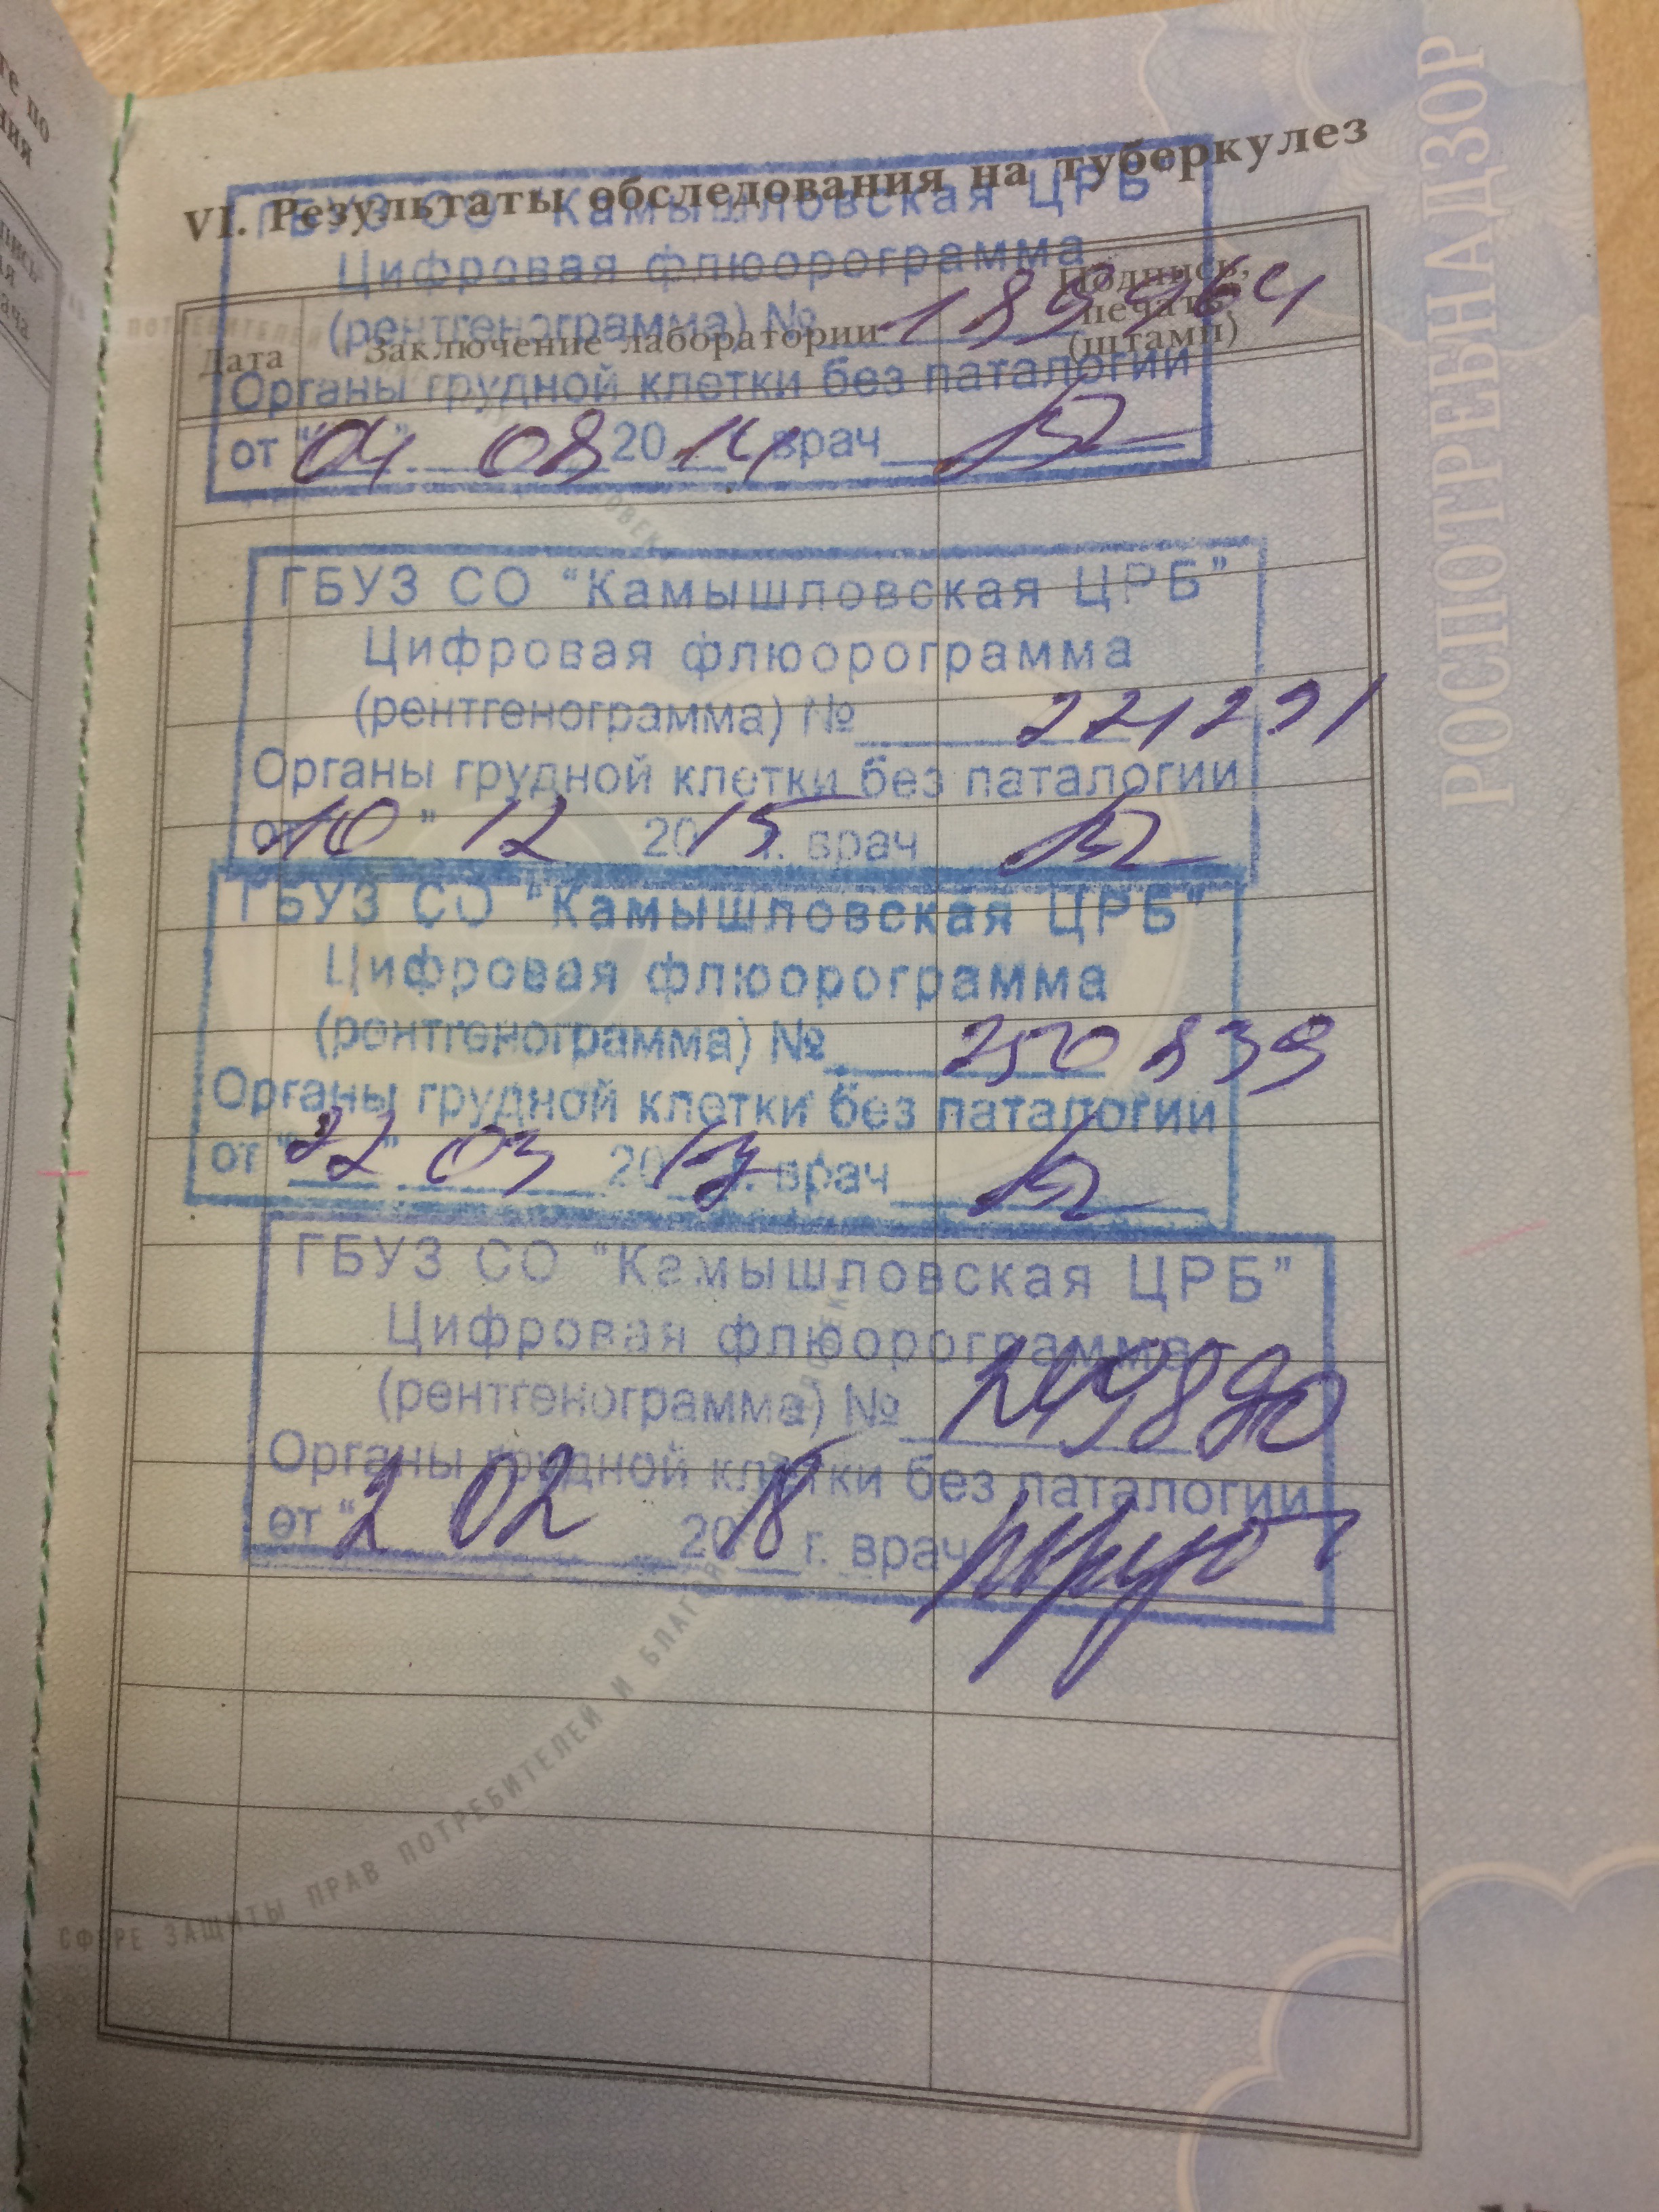 VI. Результаты обследования на туберкулез
Дата
Заключение лаборатории
Подпись,
печать
(штамп)
ГБУЗ СО "Камышловская ЦРБ"
Цифровая флюорограмма
(рентгенограмма) № 189964
Органы грудной клетки без паталогии
от "04" 08 2014 врач
ГБУЗ СО "Камышловская ЦРБ"
Цифровая флюорограмма
(рентгенограмма) № 221291
Органы грудной клетки без паталогии
от 10" 12 2015 г. врач
ГБУЗ СО "Камышловская ЦРБ"
Цифровая флюорограмма
(рентгенограмма) № 250839
Органы грудной клетки без паталогии
от "22" 03 2017 г. врач
ГБУЗ СО "Камышловская ЦРБ"
Цифровая флюорограмма
(рентгенограмма) №
Органы грудной клетки без паталогии
от "2 02 2018 г. врач
СФЕРЕ ЗАЩИТЫ ПРАВ ПОТРЕБИТЕЛЕЙ И БЛАГО
РОСПОТРЕБНАДЗОР